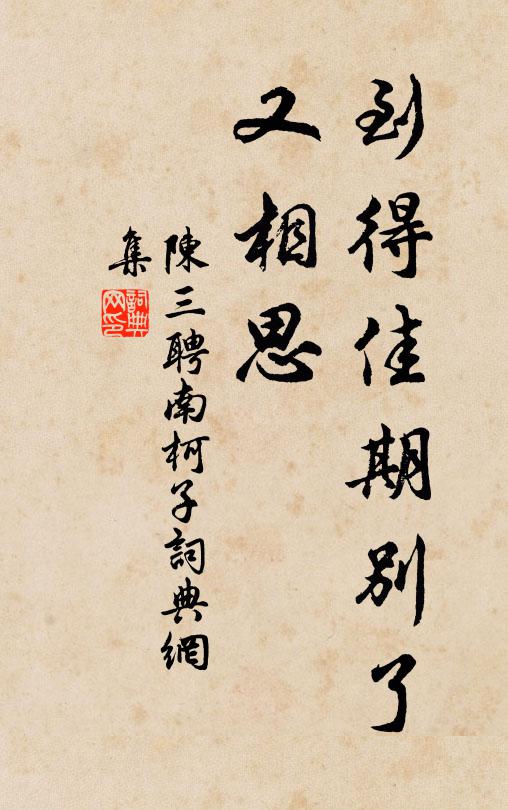 到得佳期別了
又相思
陳三聘南柯子詞典網
集
詞典网印